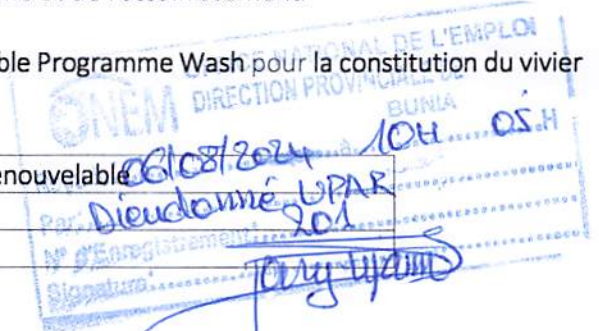 ble Programme Wash pour la constitution du vivier
OFFICE NATIONAL DE L'EMPLOI
ONEM DIRECTION PROVINCIALE DE
BUNIA
enouvelable 06/08/2024 à 10H 05 H
Par: Dieudonné UPAR
N° d'Enregistrement 201
Signature